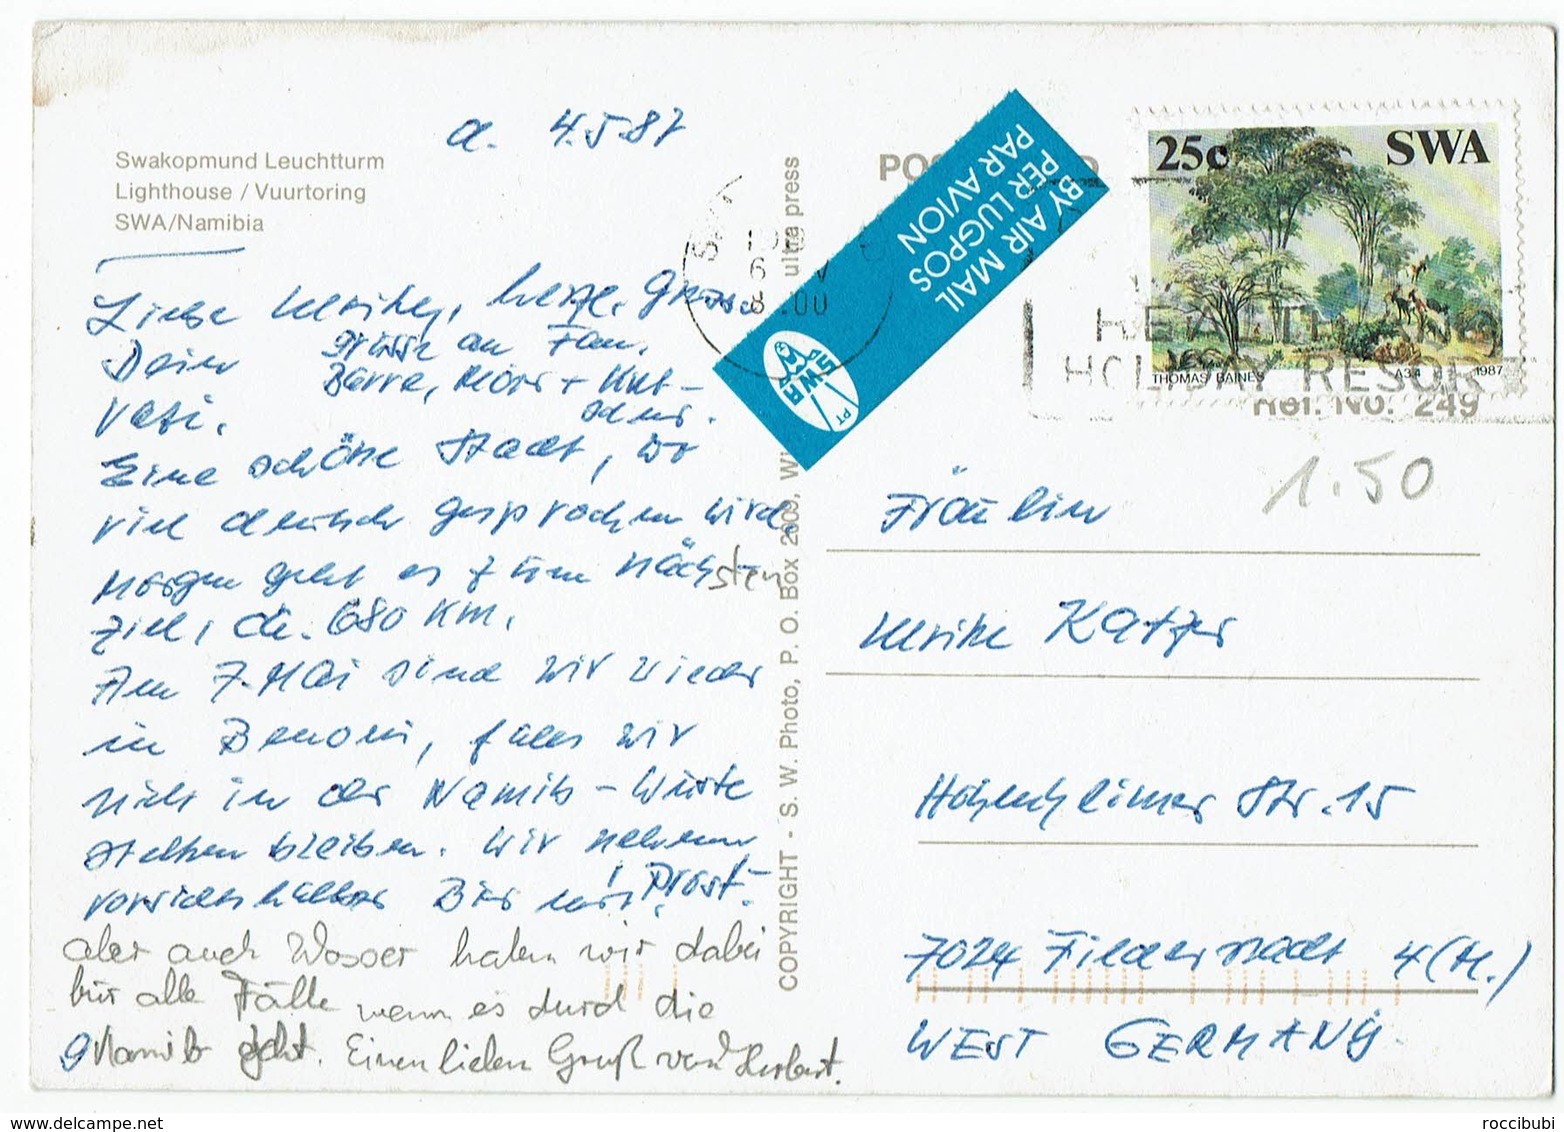 Swakopmund Leuchtturm
Lighthouse / Vuurtoring
SWA/Namibia
4.5.87
Liebe Ulrike, herzl. Grüsse
Dein
Vati.
grüsse an Fam.
Barre,
Eine schöne Stadt, wo
viel deutsch gesprochen wird.
Morgen geht es zum nächsten
Ziel, ca. 680 KM.
Am 7. Mai sind wir wieder
in Benoni, falls wir
nicht in der Namib-Wüste
stecken bleiben. Wir nehmen
vorsichtshalber Bier mit. Prost!
aber auch Wasser haben wir dabei
für alle Fälle wenn es durch die
Namib geht. Einen lieben Gruß von Herbert.
COPYRIGHT - S. W. Photo, P. O. Box 2609,
ultra press
BY AIR MAIL
PER LUGPOS
PAR AVION
SWA
PT
25c
SWA
THOMAS BAINES
A34
1987
HEALTH
HOLIDAY RESORT
Ref. No. 249
1.50
Fräulein
Ulrike Katzer
Str. 15
7024 Filderstadt 4 (H.)
WEST GERMANY
roccibubi